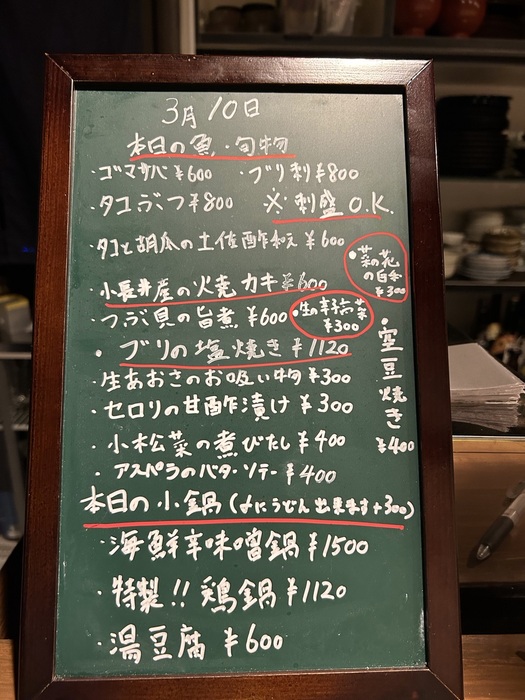 3月10日
本日の魚・旬物
・ゴマサバ ¥600 ・ブリ刺 ¥800
・タコぶつ ¥800 ※刺盛O.K.
・タコと胡瓜の土佐酢和え ¥600
・菜の花
の白和
¥300
・小長井産の火焼カキ ¥600
・つぶ貝の旨煮 ¥600
¥300
・ブリの塩焼き ¥1120
・空豆焼き ¥400
・生あおさのお吸い物 ¥300
・セロリの甘酢漬け ¥300
・小松菜の煮びたし ¥400
・アスパラのバターソテー ¥400
本日の小鍋(〆にうどん出来ます+300)
・海鮮辛味噌鍋 ¥1500
・特製!! 鶏鍋 ¥1120
・湯豆腐 ¥600